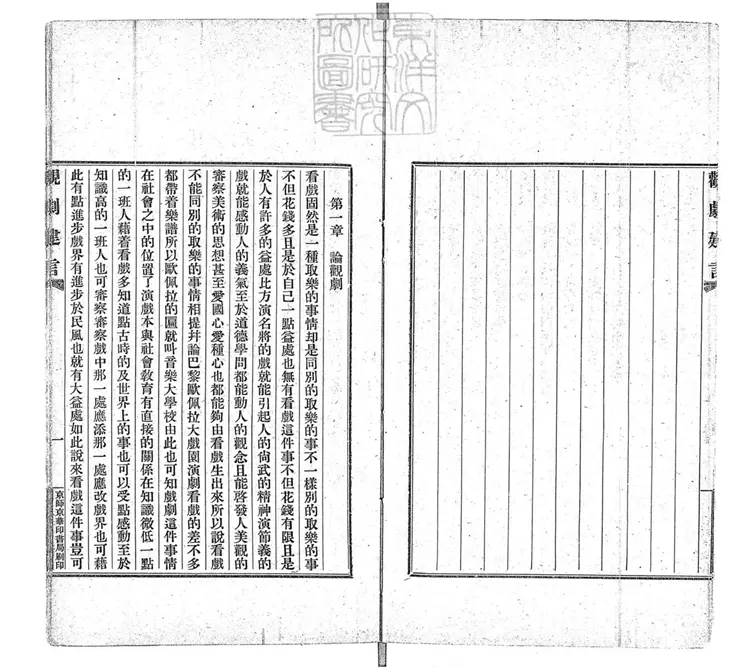 東洋文
化研究
所圖書
觀劇建言
第一章　論觀劇
看戲固然是一種取樂的事情却是同別的取樂的事不一樣別的取樂的事
不但花錢多且是於自己一點益處也無有看戲這件事不但花錢有限且是
於人有許多的益處比方演名將的戲就能引起人的尚武的精神演節義的
戲就能感動人的義氣至於道德學問都能動人的觀念且能啓發人美觀的
審察美術的思想甚至愛國心愛種心也都能夠由看戲生出來所以說看戲
不能同別的取樂的事情相提并論巴黎歐佩拉大戲園演劇看戲的差不多
都帶着樂譜所以歐佩拉的匾就叫音樂大學校由此也可知戲劇這件事情
在社會之中的位置了演戲本與社會敎育有直接的關係在知識微低一點
的一班人藉着看戲多知道點古時的及世界上的事也可以受點感動至於
知識高的一班人也可審察審察戲中那一處應添那一處應改戲界也可藉
此有點進步戲界有進步於民風也就有大益處如此說來看戲這件事豈可
觀劇建言
一
京師京華印書局刷印